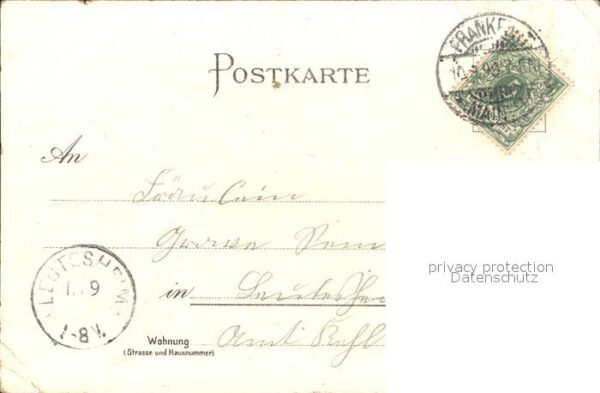 POSTKARTE
FRANKFURT
MAIN
An
Fräulein
in Leutesheim
Amt Kehl
LEUTESHEIM
9
7-8V.
Wohnung
(Strasse und Hausnummer)
privacy protection
Datenschutz